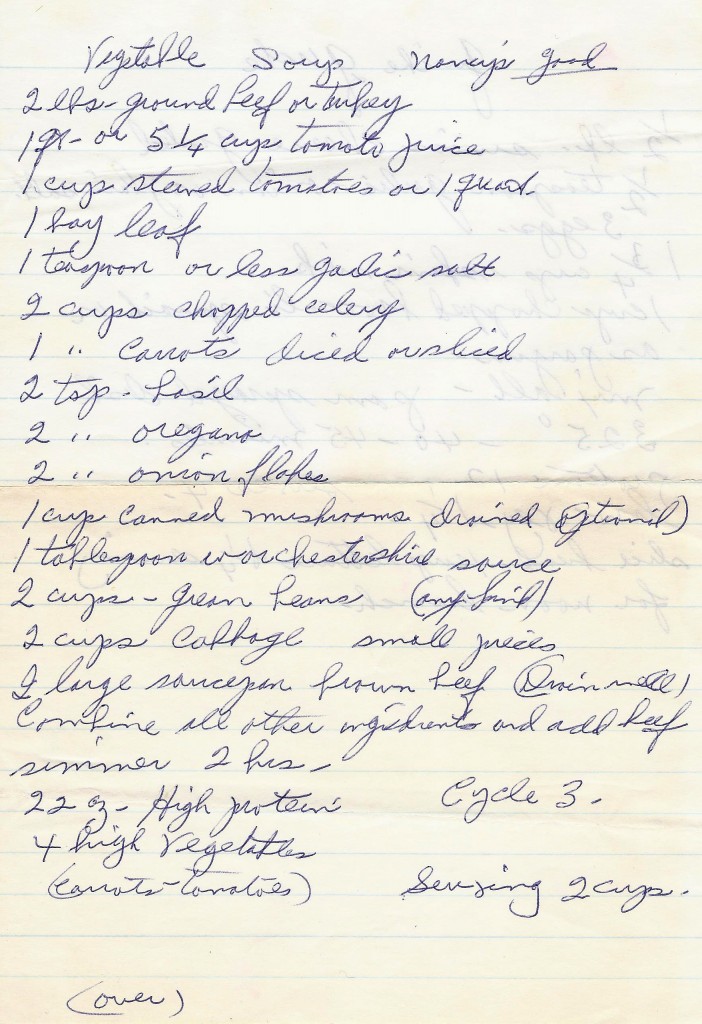 Vegetable Soup Nancy's good
2 lbs - ground beef or turkey
1 qt - or 5 1/4 cups tomato juice
1 cup stewed tomatoes or 1 quart.
1 bay leaf
1 teaspoon or less garlic salt
2 cups chopped celery
1 " carrots diced or sliced
2 tsp - basil
2 " oregano
2 " onion flakes
1 cup canned mushrooms drained (optional)
1 tablespoon worchestershire sauce
2 cups - green beans (any kind)
2 cups cabbage small pieces
large saucepan brown beef (Drain well)
Combine all other ingredients and add beef
simmer 2 hrs -
22 oz - High protein Cycle 3.
4 high Vegetables
(carrots - tomatoes) Serving 2 cups.
(over)